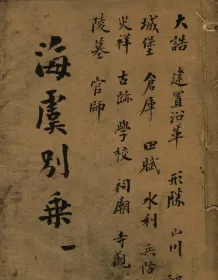 大誥　建置沿革　形勝　山川
城堡　倉庫　田賦　水利　兵防
災祥　古跡　學校　祠廟　寺觀
陵墓　官師
海虞別乗　一